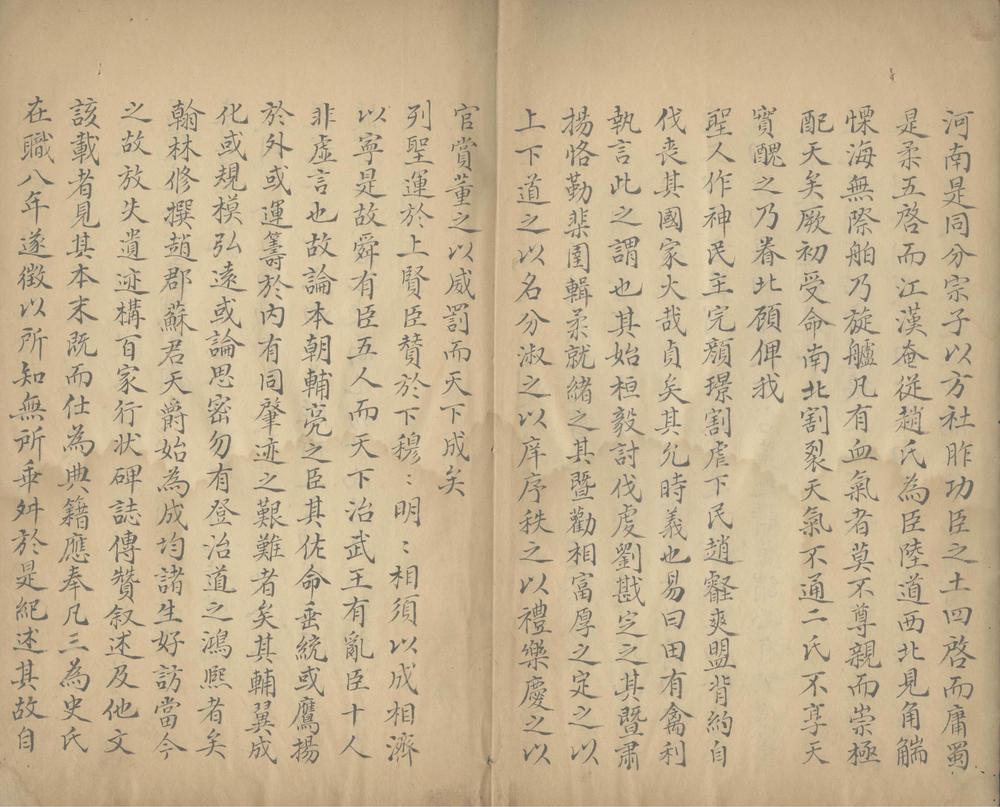 河南是同分宗子以方社胙功臣之土四啓而庸蜀
是柔五啓而江漢奄從趙氏為臣陸道西北見角端
慄海無際舶乃旋艫凡有血氣者莫不尊親而崇極
配天矣厥初受命南北割裂天氣不通二氏不享天
實醜之乃眷北顾俾我
聖人作神民主完顏璟割虐下民趙䜭爽盟背約自
伐丧其國家大哉貞矣其允時義也易曰田有禽利
執言此之謂也其始桓毅討伐虔劉戡定之其暨肅
揚恪勤棐圉輯柔就緒之其暨勸相富厚之定之以
上下道之以名分淑之以庠序秩之以禮樂慶之以
官賞董之以威罰而天下成矣
列聖運於上賢臣贊於下穆：明：相須以成相濟
以寧是故舜有臣五人而天下治武王有亂臣十人
非虚言也故論本朝輔亮之臣其佐命垂統或鷹揚
於外或運籌於内有同肇迹之艱難者矣其輔翼成
化或規模弘遠或論思密勿有登治道之鴻熙者矣
翰林修撰趙郡蘇君天爵始為成均諸生好訪當今
之故放失遺迹構百家行状碑誌傳贊叙述及他文
該載者見其本末既而仕為典籍應奉凡三為史氏
在職八年遂徴以所知無所乖舛於是紀述其故自